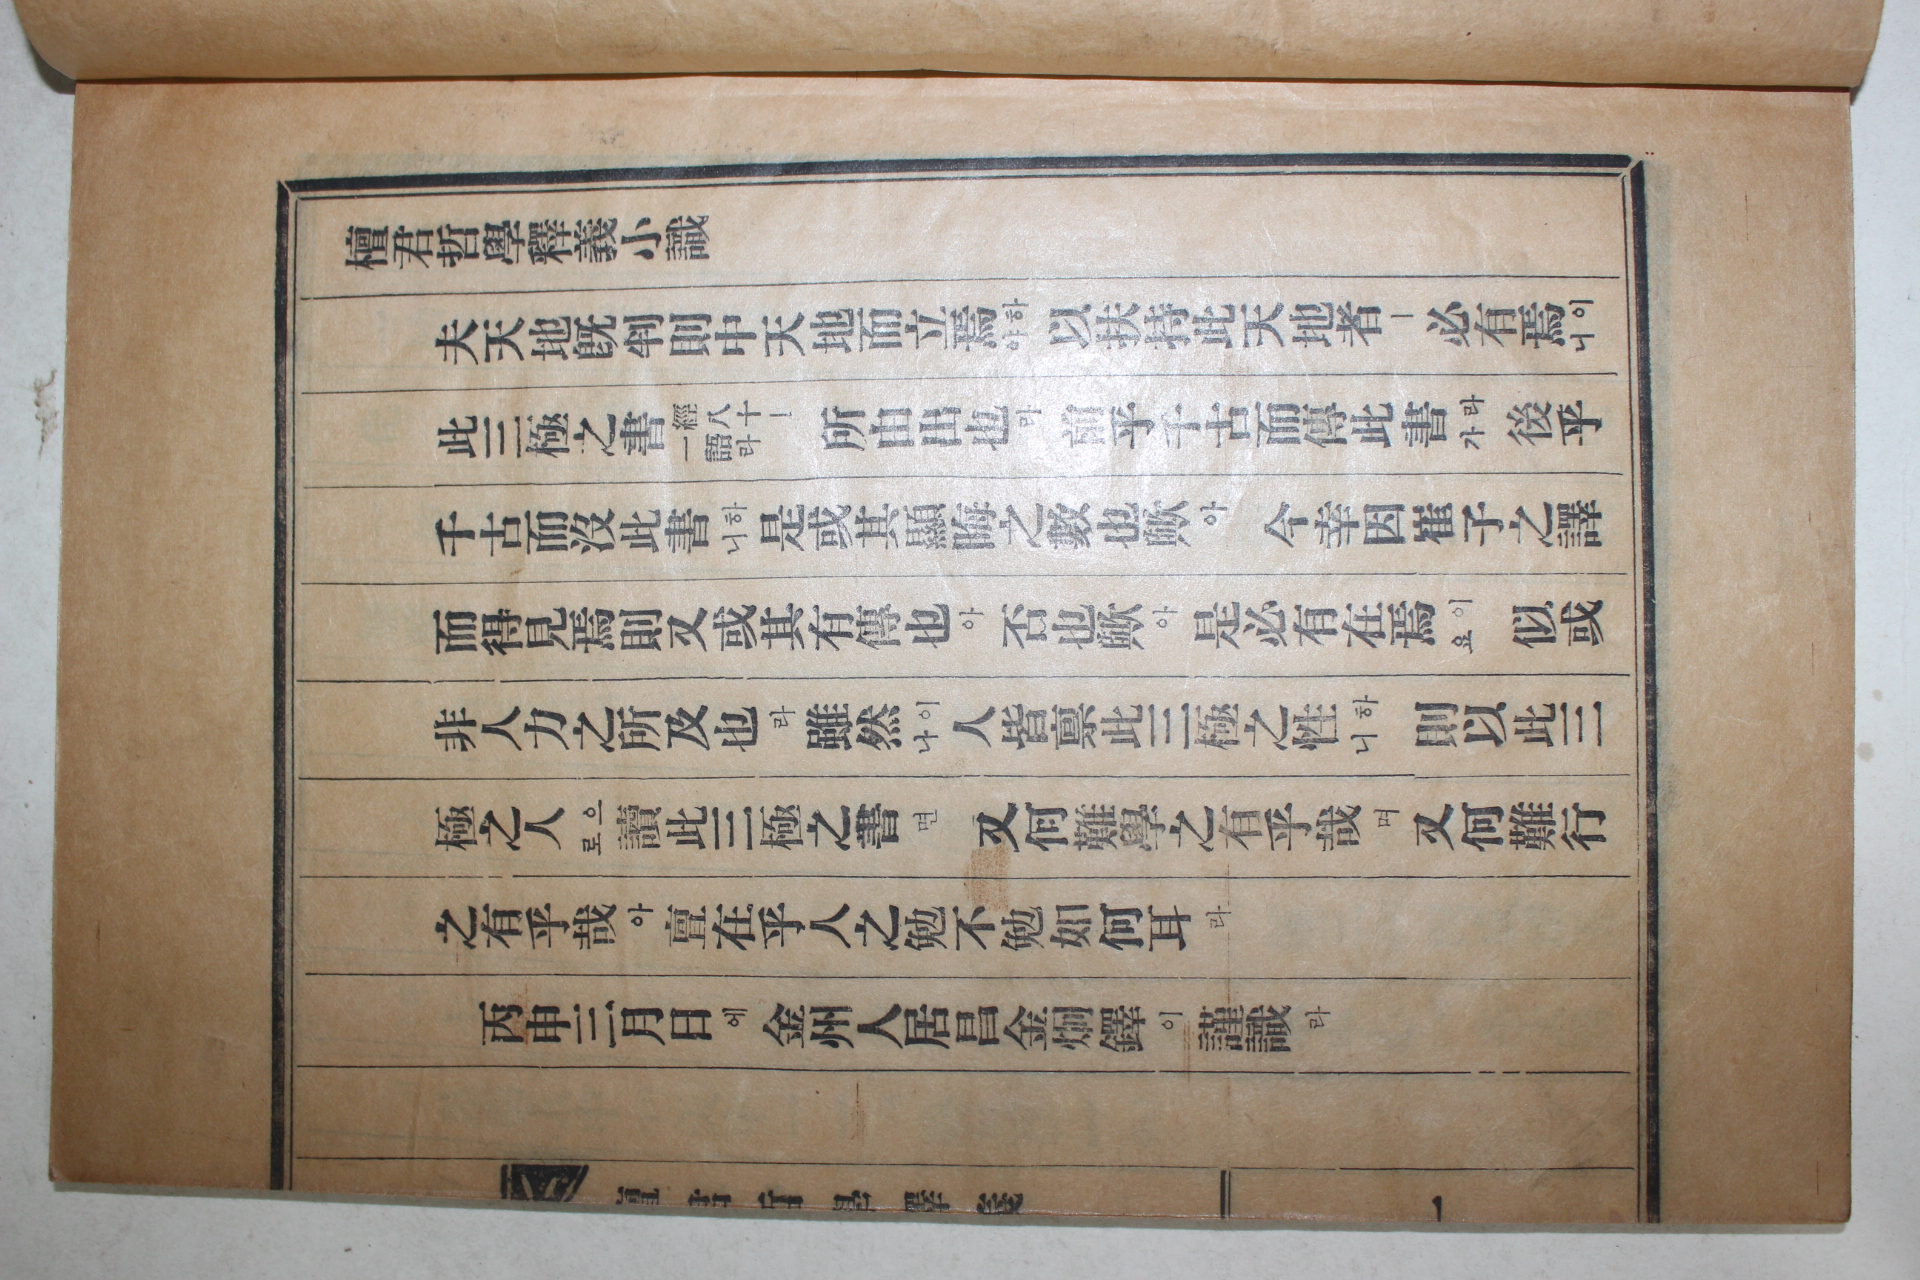 檀君哲學釋義小識
夫天地旣判則中天地而立焉하야以扶持此天地者ㅣ必有焉이니
此三極之書經八十一語라ㅣ所由出也라前乎千古而傳此書라가後乎
千古而沒此書하니是或其顯晦之數也歟아今幸因崔子之譯
而得見焉則又或其有傳也아否也歟아是必有在焉이요似或
非人力之所及也라雖然이나人皆禀此三極之性하니則以此三
極之人으로讀此三極之書면又何難學之有乎哉며又何難行
之有乎哉아亶在乎人之勉不勉如何耳라
丙申三月日에金州人居昌金炯鐸이謹識라
檀君哲學釋義
一